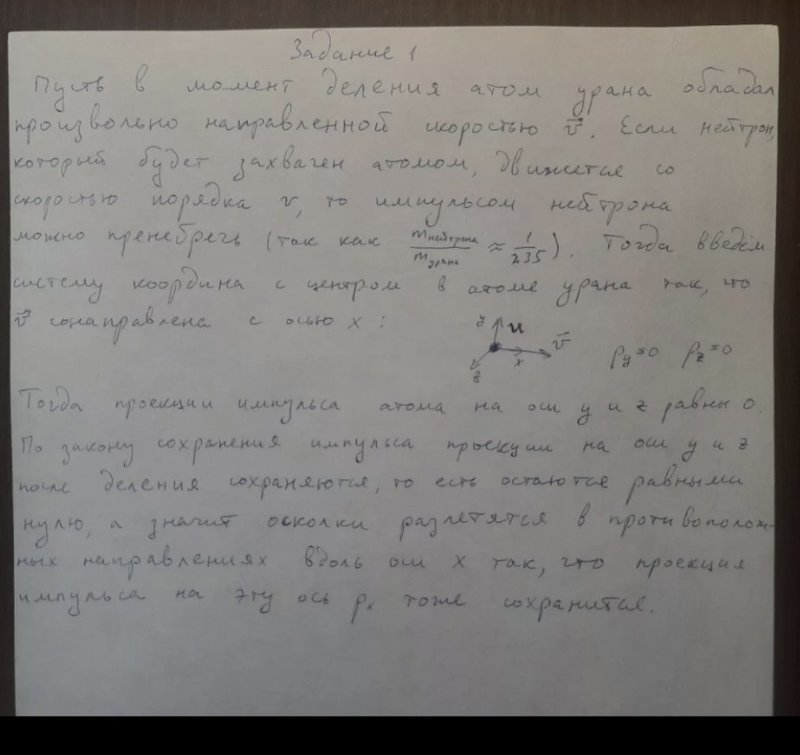 Задание 1
Пусть в момент деления атом урана обладал
произвольно направленной скоростью v⃗. Если нейтрон,
который будет захвачен атомом, движется со
скоростью порядка v, то импульсом нейтрона
можно пренебречь (так как mнейтрона/mурана ≈ 1/235). Тогда введём
систему координа с центром в атоме урана так, что
v⃗ сонаправлена с осью x:
y u v⃗ x z
py=0 pz=0
Тогда проекции импульса атома на оси y и z равны 0.
По закону сохранения импульса проекции на оси y и z
после деления сохраняются, то есть остаются равными
нулю, а значит осколки разлетятся в противополож-
ных направлениях вдоль оси x так, что проекция
импульса на эту ось px тоже сохранится.